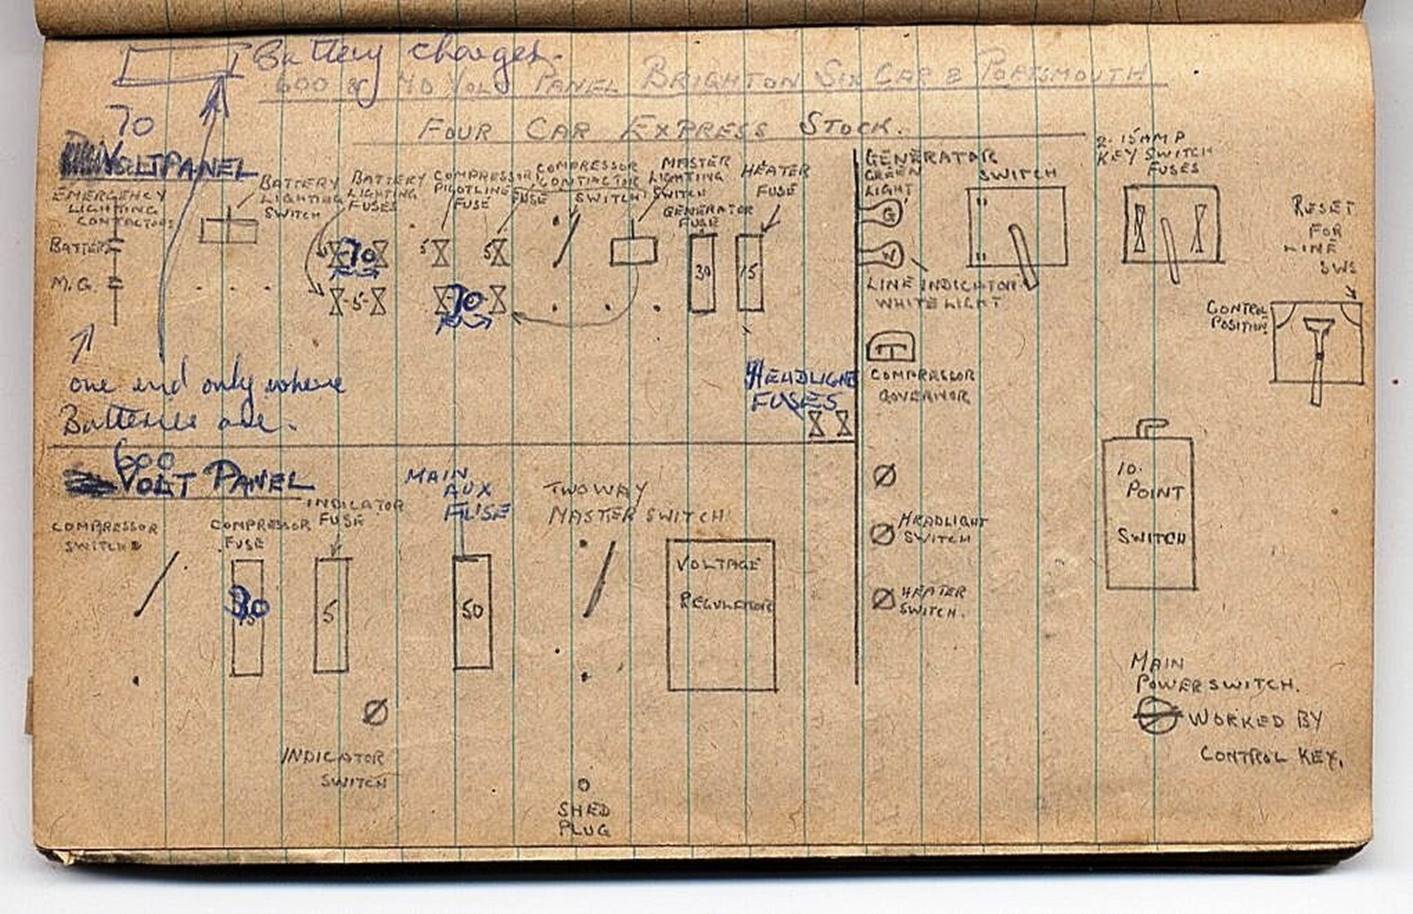 Battery charges.
600 & 70 VOLT PANEL BRIGHTON SIX CAR & PORTSMOUTH
FOUR CAR EXPRESS STOCK.
70
VOLT PANEL
EMERGENCY
LIGHTING
CONTACTORS
BATTERY
M.G.
BATTERY
LIGHTING
SWITCH
BATTERY
LIGHTING
FUSES
COMPRESSOR
PILOTLINE
FUSE
COMPRESSOR
CONTACTOR
FUSE SWITCH
MASTER
LIGHTING
SWITCH
GENERATOR
FUSE
HEATER
FUSE
10
5
5
5
10
30
15
one end only where
Batteries are.
HEADLIGHT
FUSES
GENERATOR
GREEN
LIGHT
G
W
LINE INDICATOR
WHITE LIGHT
SWITCH
2. 15 AMP
KEY SWITCH
FUSES
RESET
FOR
LINE
SWS
CONTROL
POSITION
COMPRESSOR
GOVERNOR
HEADLIGHT
SWITCH
HEATER
SWITCH.
10.
POINT
SWITCH
MAIN
POWER SWITCH.
WORKED BY
CONTROL KEY.
600
VOLT PANEL
COMPRESSOR
SWITCH
COMPRESSOR
FUSE
30
INDICATOR
FUSE
5
MAIN
AUX
FUSE
50
TWO WAY
MASTER SWITCH
VOLTAGE
REGULATOR
INDICATOR
SWITCH
SHED
PLUG